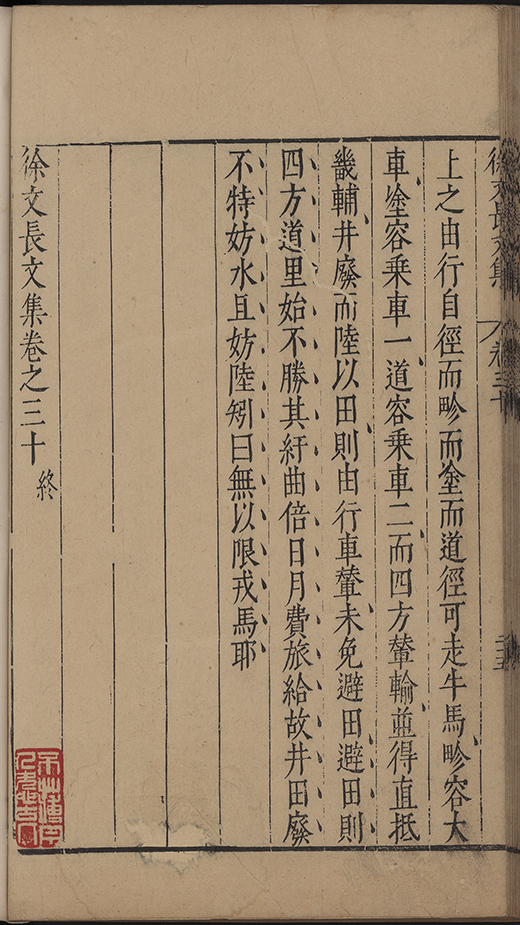 徐文長文集 卷三十
上之由行自徑而畛而塗而道徑可走牛馬畛容大
車塗容乘車一道容乘車二而四方輦輸並得直抵
畿輔井廢而陸以田則由行車輦未免避田避田則
四方道里始不勝其紆曲倍日月費旅給故井田廢
不特妨水且妨陸矧曰無以限戎馬耶
徐文長文集卷之三十 終